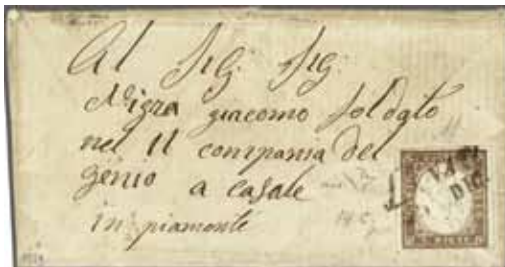 Al Sig. Sig.
Nigra giacomo soldato
nel 11 compania del
genio a casale
in piamonte
DIC.